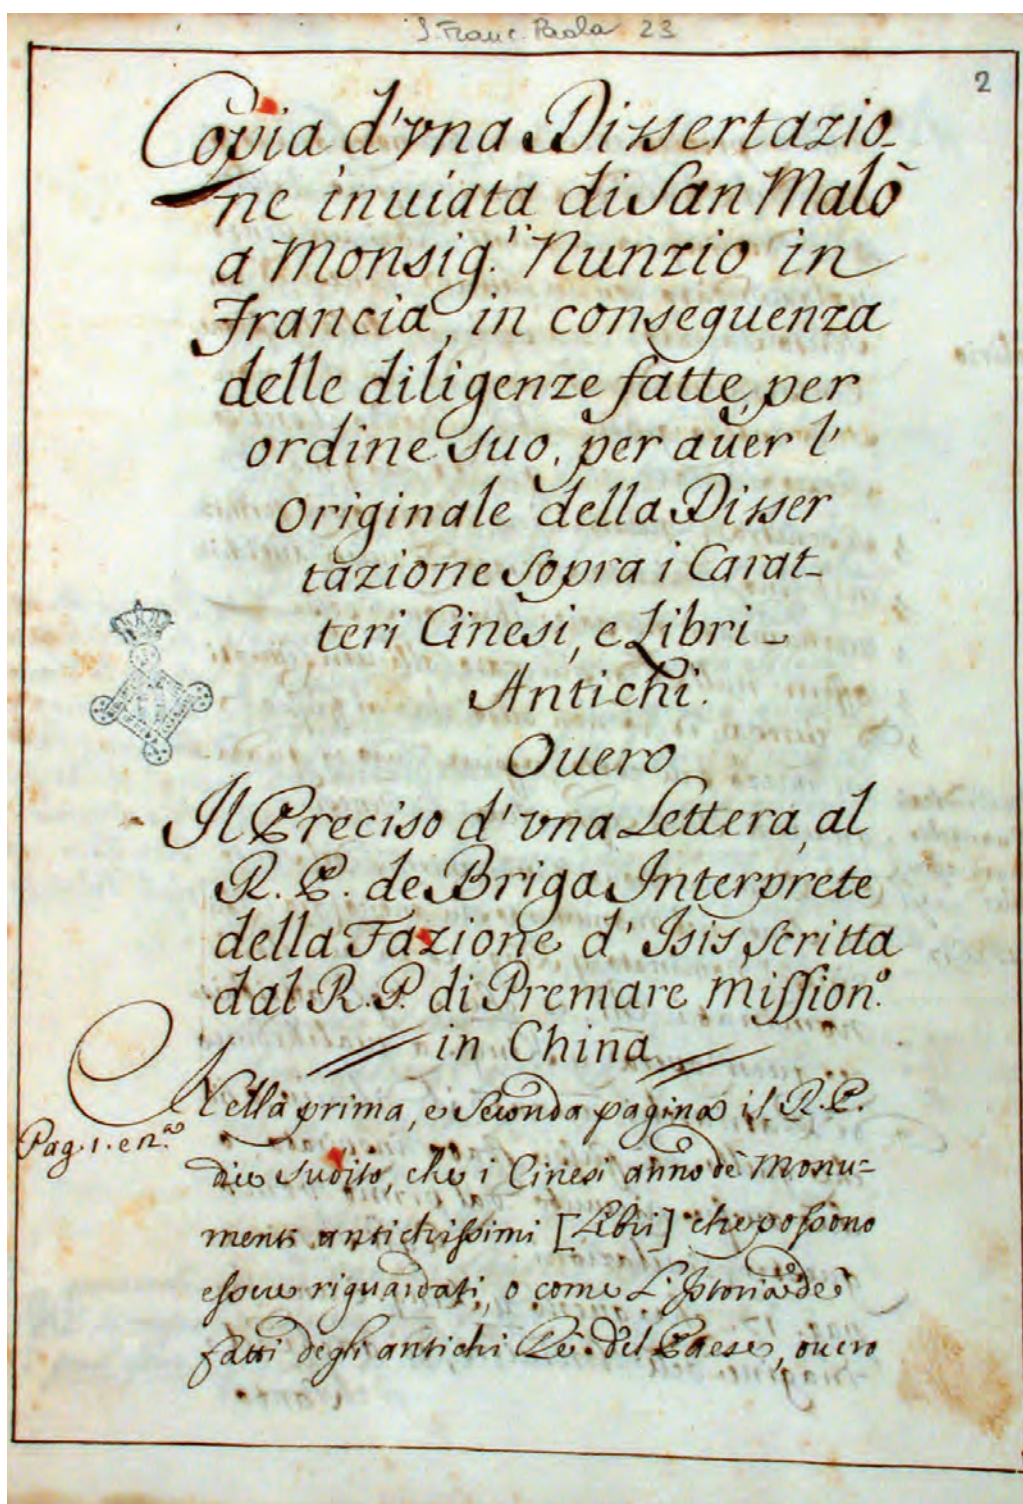 S. Franc. Paola 23
2
Copia d'vna Dissertazio-
ne inuiata di San Malò
a Monsig.r Nunzio in
Francia, in conseguenza
delle diligenze fatte, per
ordine suo, per auer l'
Originale della Disser
tazione sopra i Carat-
teri Cinesi, e Libri -
Antichi.
Ouero
Il Preciso d'vna Lettera, al
R. P. de Briga Interprete
della Fazione d'Isis, scritta
dal R. P. di Premare Mission.o
in China
Nella prima, e Seconda pagina il R. P.
Pag. 1. e 2.a
dice subito, che i Cinesi anno de Monu=
menti antichissimi [Libri] che possono
essere riguardati, o come L'Istoria de
fatti degli antichi Rè del Paese, ouero